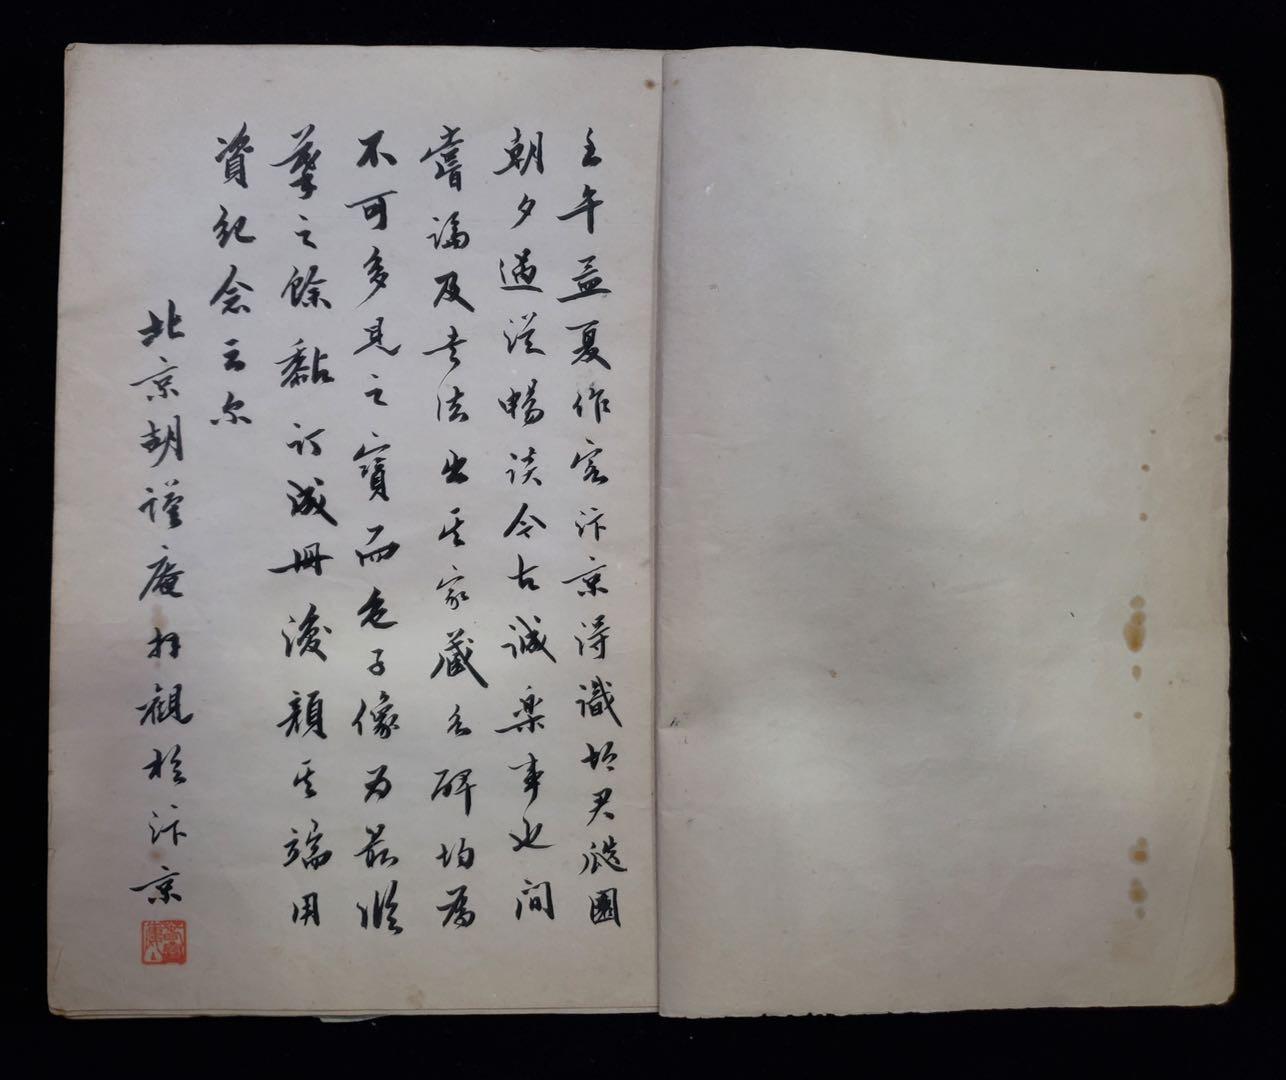 壬午孟夏作客汴京得識胡君廄園
朝夕過從暢談今古誠樂事也間
嘗論及書法出其家藏名碑均為
不可多見之寶而老子像為最
摹之餘黏訂成冊後顏其端用
資紀念云尔
北京胡謹庵拜觀於汴京